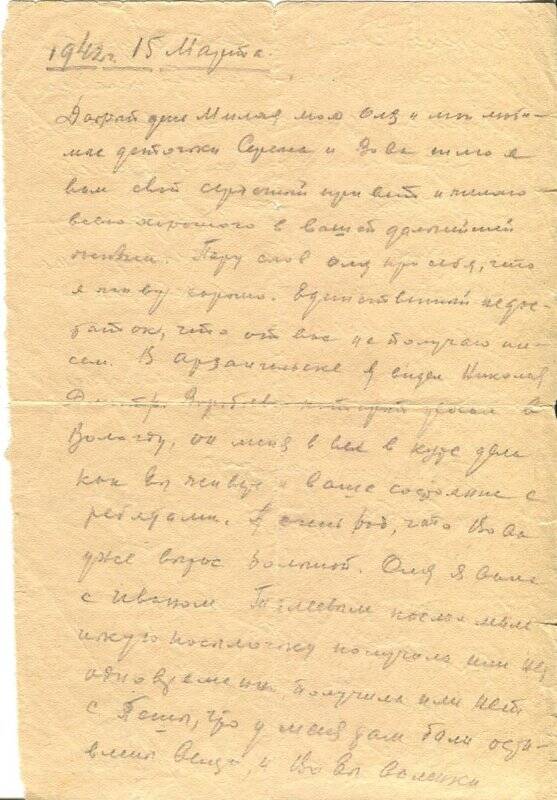 1942 г. 15 Марта.
Добрый день Милая моя Оля и мои люби-
мые деточки Сережа и Вова шлю я
вам свой сердечный привет и желаю
всего хорошого в вашей дальнейшей
жизни. Пару слов Оля про себя, что
я живу хорошо. Единственный недос-
таток, что от вас не получаю пи-
сем. В Архангельске я видел Николая
который уехал в
Вологду, он меня ввел в курс дела
как вы живете и ваше состояние с
ребятами. Я очень рад, что Вова
уже вырос большой. Оля я вам
с Иваном послал мале-
нькую посылочку получила или нет
одновременно получила или нет
с что у меня там были оста-
влены вещи, и Вовы валенки